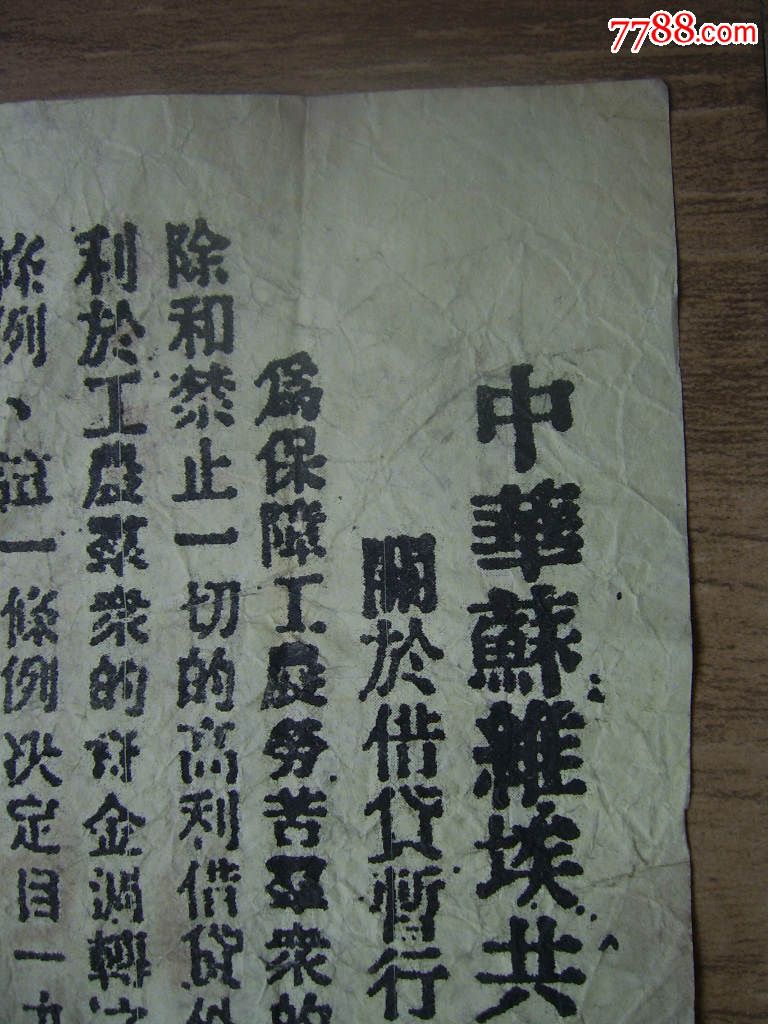 7788.com
中華蘇維埃共
關於借貸暫行
為保障工農勞苦羣衆的
除和禁止一切的高利借貸
利於工農羣衆的 金調轉
條例、這一條例決定自一九